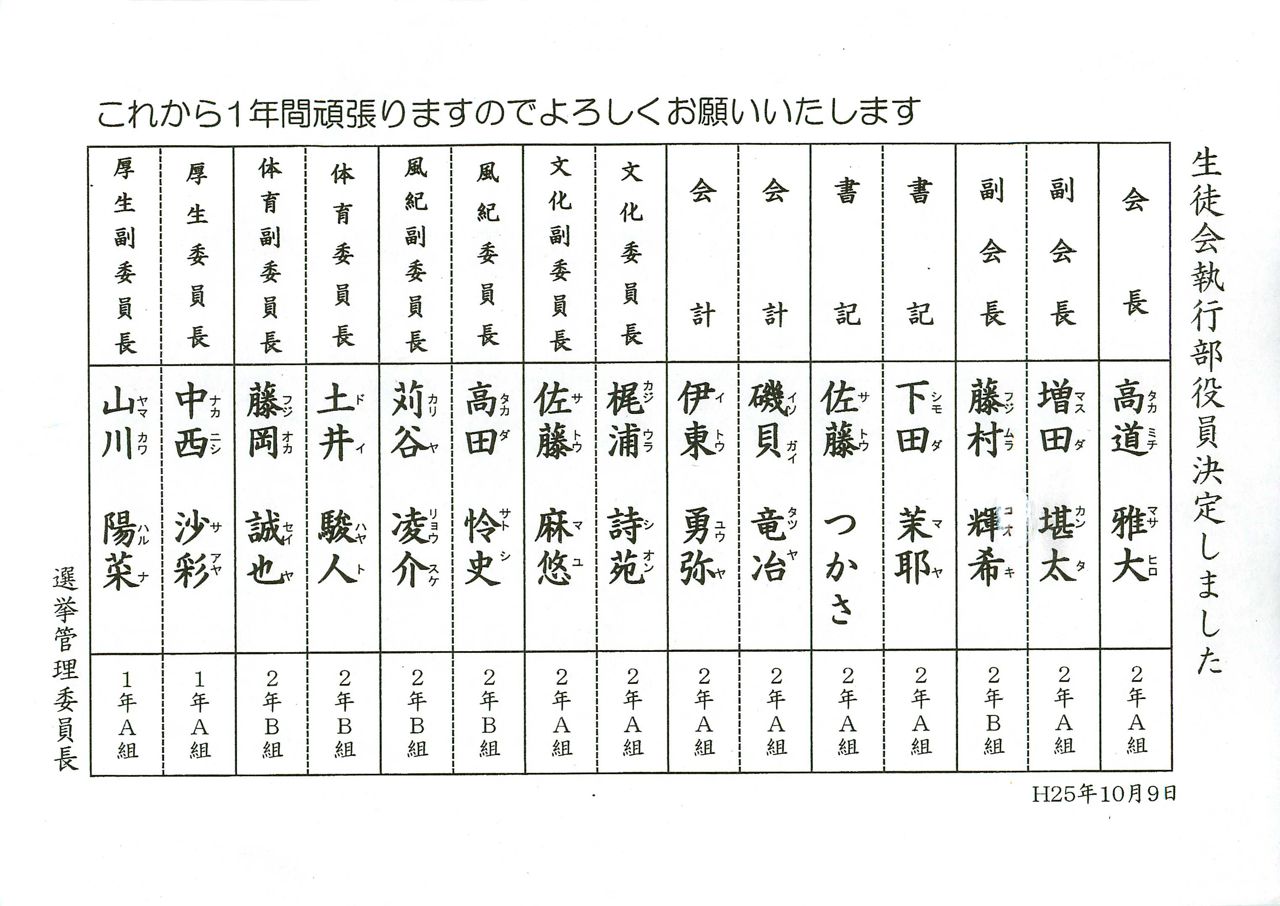 生徒会執行部役員決定しました
これから1年間頑張りますのでよろしくお願いいたします
会長 高道 雅大 タカ ミチ マサ ヒロ 2年A組
副会長 増田 堪太 マス ダ カン タ 2年A組
副会長 藤村 輝希 フジ ムラ コオ キ 2年B組
書記 下田 茉耶 シモ ダ マ ヤ 2年A組
書記 佐藤 つかさ サ トウ 2年A組
会計 磯貝 竜冶 イソ ガイ タツ ヤ 2年A組
会計 伊東 勇弥 イ トウ ユウ ヤ 2年A組
文化委員長 梶浦 詩苑 カジ ウラ シ オン 2年A組
文化副委員長 佐藤 麻悠 サ トウ マ ユ 2年A組
風紀委員長 高田 怜史 タカ ダ サト シ 2年B組
風紀副委員長 苅谷 凌介 カリ ヤ リョウ スケ 2年B組
体育委員長 土井 駿人 ド イ ハヤ ト 2年B組
体育副委員長 藤岡 誠也 フジ オカ セイ ヤ 2年B組
厚生委員長 中西 沙彩 ナカ ニシ サ アヤ 1年A組
厚生副委員長 山川 陽菜 ヤマ カワ ハル ナ 1年A組
選挙管理委員長
H25年10月9日